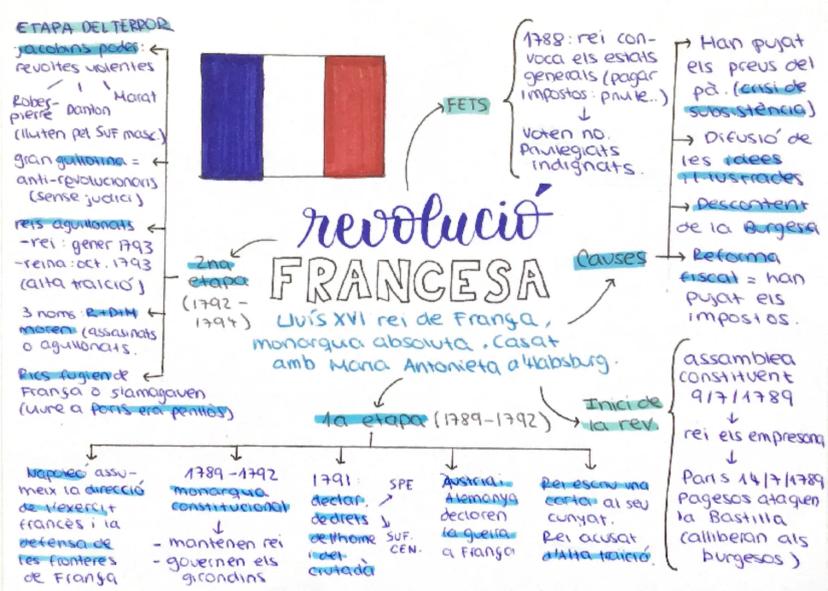 ETAPA DEL TERROR
jacobins poder:
revoltes violentes
Robes-
pierre
Danton
Marat
(lluiten pel SUF masc.)
gran guillotina =
anti-revolucionaris
(sense judici)
reis aguillonats
-rei: gener 1793
-reina: oct. 1793
(alta traïció)
3 noms: R+D+M
moren (assasinats
o aguillonats.
Rics fugien de
França o s'amagaven
(viure a París era perillós)
FETS
1788: rei con-
voca els estats
generals (pagar
impostos: privile..)
↓
voten no.
Privilegiats
indignats.
→ Han pujat
els preus del
pà. (crisi de
subsistència)
→ Difusió de
les idees
il·lustrades
→ Descontent
de la Burgesia
→ Reforma
fiscal = han
pujat els
impostos.
Causes
revolució
FRANCESA
Lluís XVI rei de França,
monarquia absoluta. Casat
amb Maria Antonieta d'Habsburg.
2na
etapa
(1792-
1794)
1a etapa (1789-1792)
Inici de
la rev.
assamblea
constituent
9/7/1789
↓
rei els empresona
↓
París 14/7/1789
Pagesos ataquen
la Bastilla
(alliberan als
burgesos)
Napoleó assu-
meix la direcció
de l'exèrcit
francès i la
defensa de
les fronteres
de França
1789-1792
monarquia
constitucional
↓
- mantenen rei
- governen els
girondins
1791:
declar.
de drets
de l'home
i del
ciutadà
SPE
SUF.
CEN.
Àustria i
Alemanya
decloren
la guerra
a França
Rei escriu una
carta al seu
cunyat.
Rei acusat
d'Alta traïció.